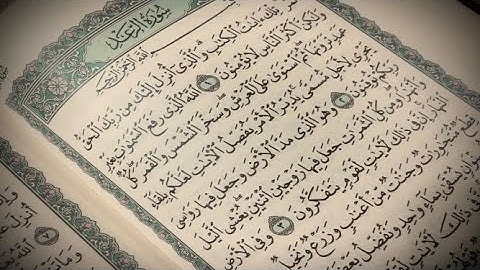 سُورَةُ الرَّعْدِ
بِسْمِ اللَّهِ الرَّحْمَٰنِ الرَّحِيمِ
تِلْكَ ءَايَٰتُ الْكِتَٰبِ وَالَّذِي أُنزِلَ إِلَيْكَ مِن رَّبِّكَ الْحَقُّ
وَلَٰكِنَّ أَكْثَرَ النَّاسِ لَا يُؤْمِنُونَ ١ اللَّهُ الَّذِي رَفَعَ السَّمَٰوَٰتِ بِغَيْرِ
عَمَدٍ تَرَوْنَهَا ثُمَّ اسْتَوَىٰ عَلَى الْعَرْشِ وَسَخَّرَ الشَّمْسَ وَالْقَمَرَ كُلٌّ
يَجْرِي لِأَجَلٍ مُّسَمًّى يُدَبِّرُ الْأَمْرَ يُفَصِّلُ الْءَايَٰتِ لَعَلَّكُم بِلِقَاءِ
رَبِّكُمْ تُوقِنُونَ ٢ وَهُوَ الَّذِي مَدَّ الْأَرْضَ وَجَعَلَ فِيهَا رَوَٰسِيَ
وَأَنْهَٰرًا وَمِن كُلِّ الثَّمَرَٰتِ جَعَلَ فِيهَا زَوْجَيْنِ اثْنَيْنِ يُغْشِي الَّيْلَ
النَّهَارَ إِنَّ فِي ذَٰلِكَ لَءَايَٰتٍ لِّقَوْمٍ يَتَفَكَّرُونَ ٣ وَفِي الْأَرْضِ
قِطَعٌ مُّتَجَٰوِرَٰتٌ وَجَنَّٰتٌ مِّنْ أَعْنَٰبٍ وَزَرْعٌ وَنَخِيلٌ
يُسْقَىٰ بِمَاءٍ وَٰحِدٍ وَنُفَضِّلُ بَعْضَهَا
فِي ذَٰلِكَ لَءَايَٰتٍ